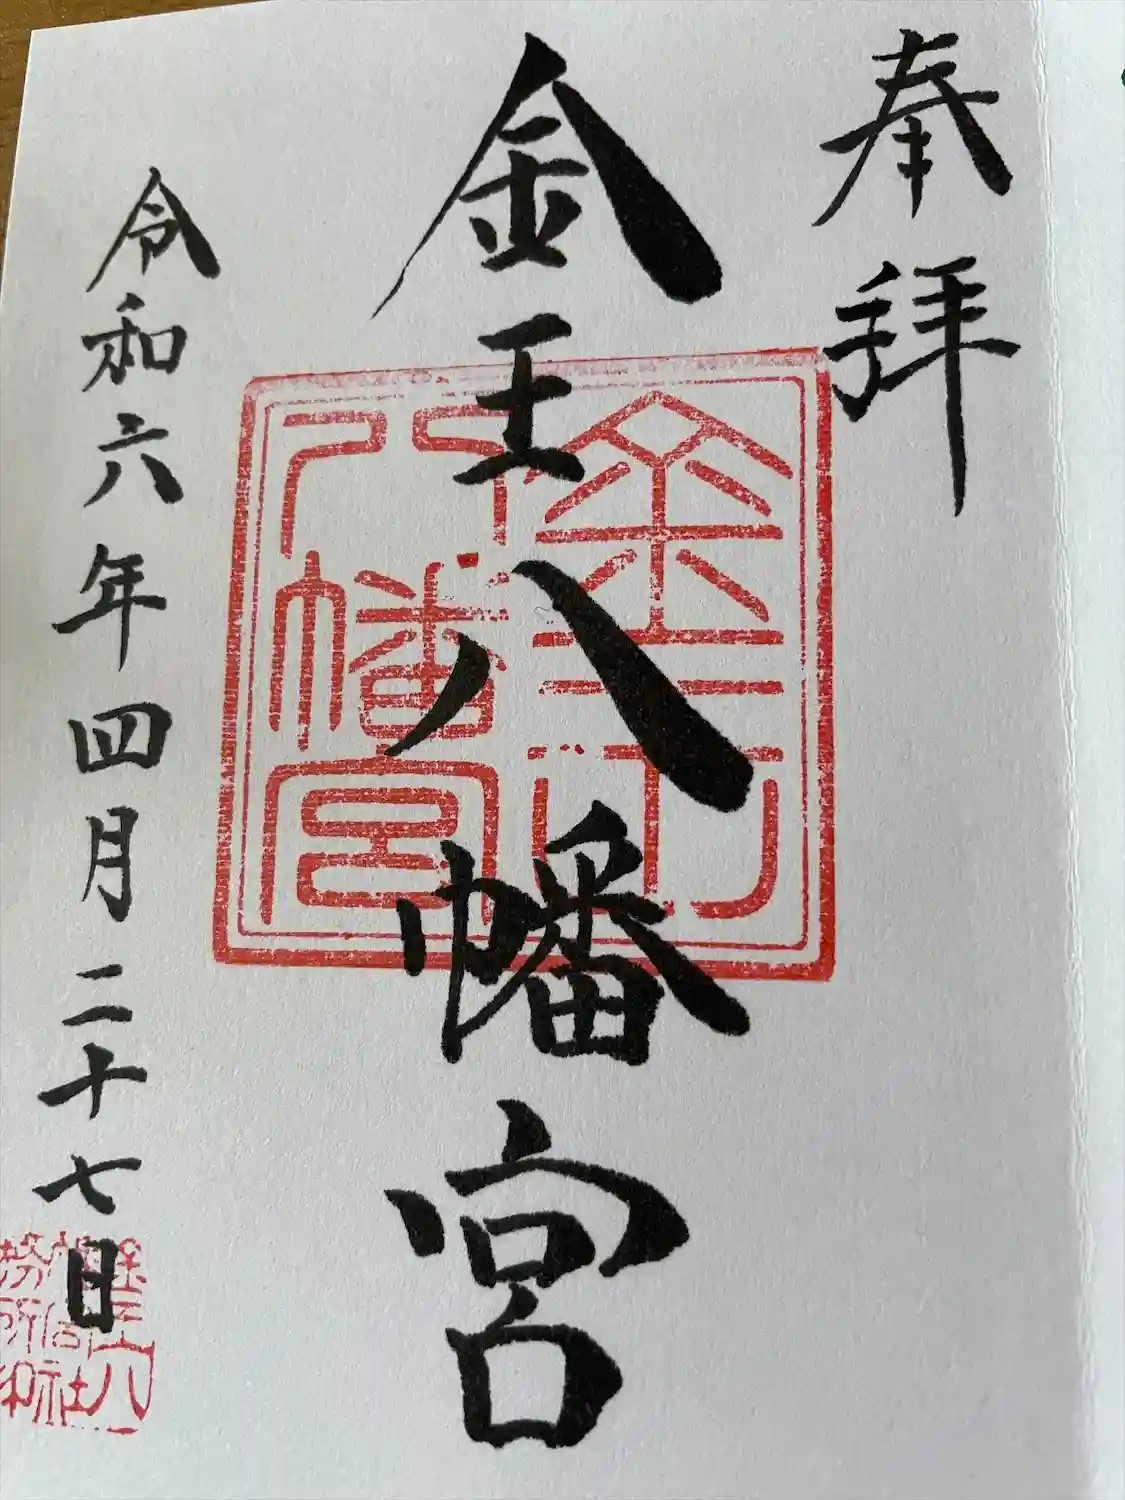 奉拝
金王八幡宮
令和六年四月二十七日
金王
八幡宮